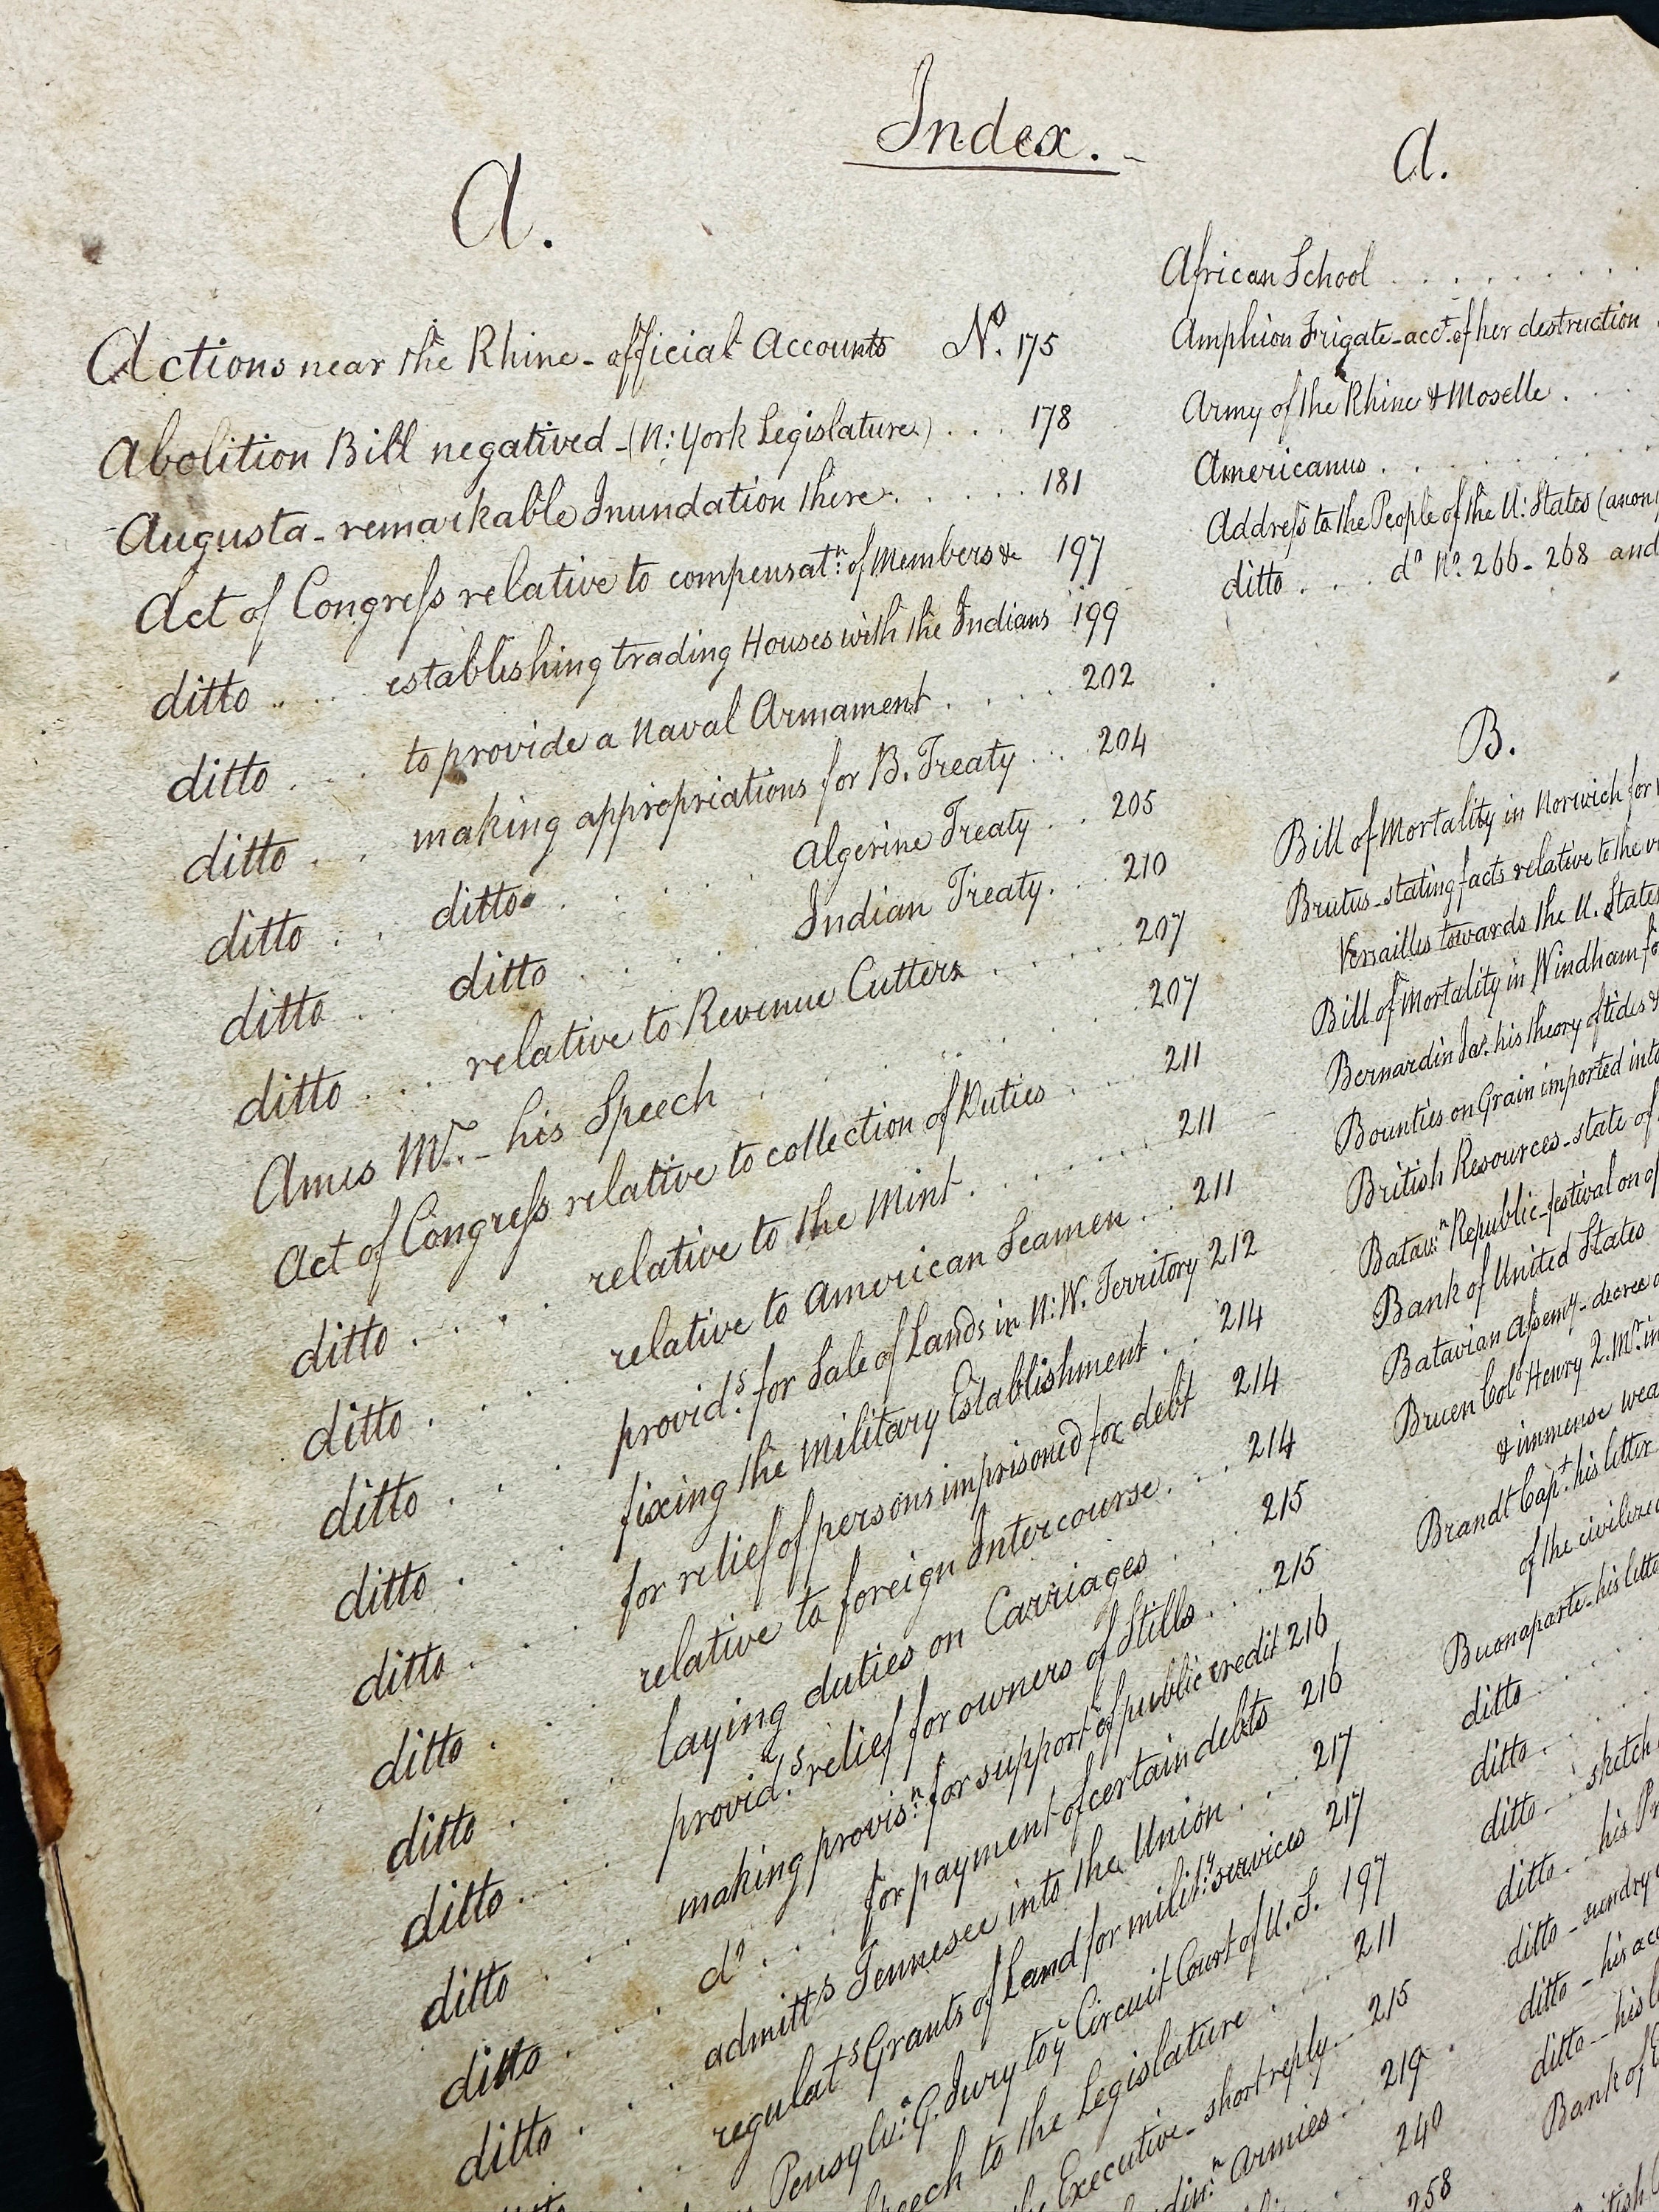 Index.
A.
Actions near the Rhine - official Accounts No. 175
Abolition Bill negatived - (N: York Legislature) . . . 178
Augusta - remarkable Inundation there . . . . . . 181
Act of Congress relative to compensatn: of Members & 197
ditto . . . . establishing trading Houses with the Indians 199
ditto . . . . to provide a Naval Armament . . . 202
ditto . . . making appropriations for B. Treaty . . . 204
ditto . . . ditto . . . . . Algerine Treaty . . 205
ditto . . . ditto . . . . . Indian Treaty . . . 210
ditto . . . relative to Revenue Cutters . . . . . 207
Ames Mr. - his Speech . . . . . . 207
Act of Congress relative to collection of Duties . . . . 211
ditto . . . . relative to the Mint . . . . . . . 211
ditto . . . . relative to American Seamen . . . 211
ditto . . . . provid.s for Sale of Lands in N:W. Territory 212
ditto . . . . fixing the Military Establishment . . . 214
ditto . . . . for relief of persons imprisoned for debt 214
ditto . . . . relative to foreign Intercourse . . . . 214
ditto . . . . laying duties on Carriages . . . 215
ditto . . . . provid.s relief for owners of Stills . . . . 215
ditto . . . . making provisn: for support of public credit 216
ditto . . . . do . . . . for payment of certain debts 216
ditto . . . . admitts Tennesee into the Union . . . . 217
ditto . . . . regulats Grants of Land for mility: services 217
Pensylva: G. Jury to ye Circuit Court of U.S. 197
to the Legislature . . . . 211
Executive - short reply . . 215
Armies . . 219
240
258
A.
African School . . . . . . . .
Amphion Frigate - acct. of her destruction .
Army of the Rhine & Moselle . . .
Americanus . . . . . . . .
Address to the People of the U: States
ditto . . . . do No. 266 - 268 and
B.
Bill of Mortality in Norwich for
Brutus - stating facts relative to the
Versailles towards the U. States
Bill of Mortality in Windham
Bernardin his theory of tides &
Bounties on Grain imported into
British Resources - state of
Batavn: Republic - festival on
Bank of United States
Batavian Assemy - decree
Bruen Colo Henry 2. Mr. in
& immense
Brandt Capt. his letter
of the
Buonaparte - his
ditto . . . .
ditto . . . .
ditto - sketch
ditto . . his
ditto - sundry
ditto - his
ditto - his
Bank of